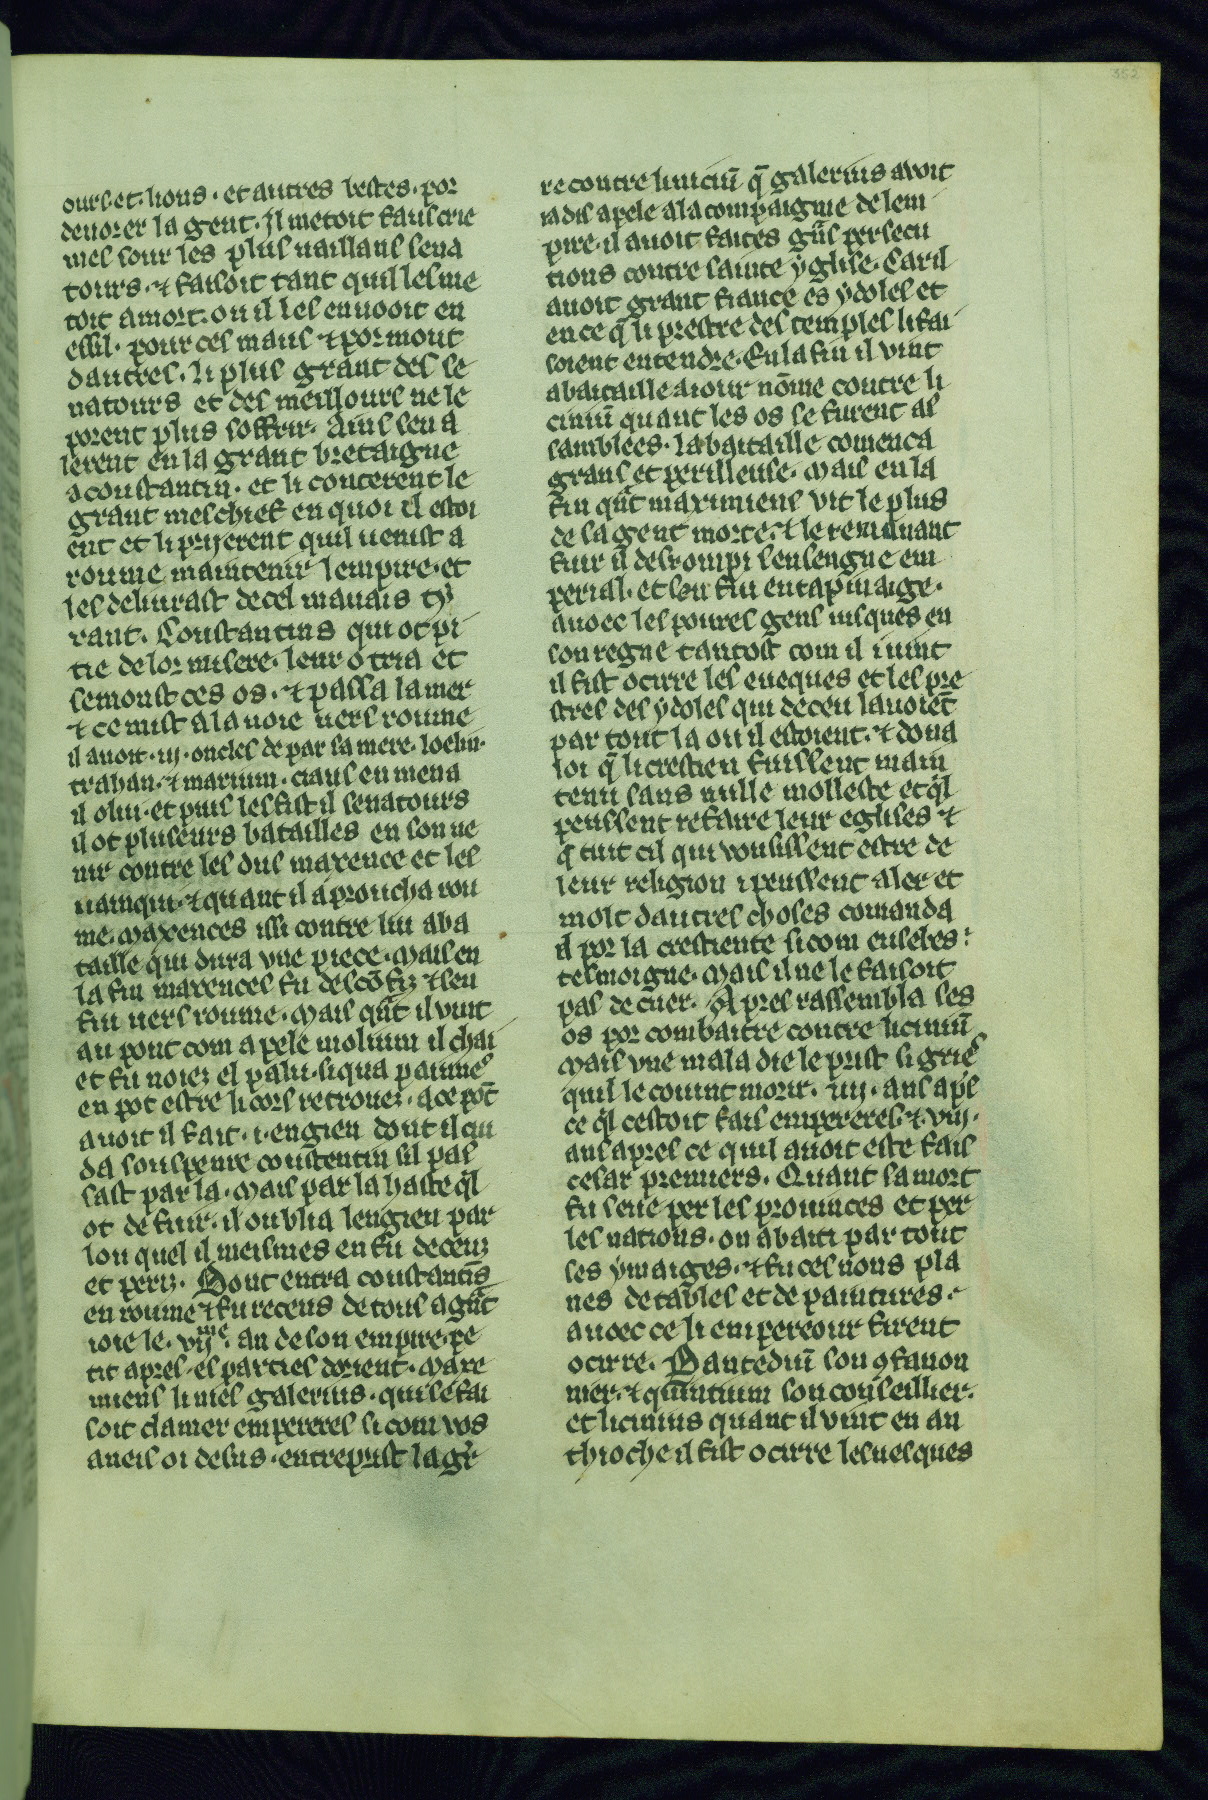 352
ours et lions · et autres bestes · por
deuorer la gent · Il metoit faus crie
mes sour les plus uaillans sena
tours · ⁊ faisoit tant quil les me
toit a mort · ou il les enuooit en
essil · pour ces maus ⁊ por mout
dautres · li plus grant des se
natours et des meillours ne le
porent plus soffrir · Ains sen a
lerent en la grant bretaigne
a constantin · et li conterent le
grant meschief en quoi il estoi
ent et li prijerent quil uenist a
roume maintenir lempire · et
les deliurast de cel mauais ty
rant · Constantins qui ot pi
tie de lor misere · leur otria et
semonst ces os · ⁊ passa la mer
⁊ ce mist a la uoie uers roume
il auoit · iij · oncles de par sa mere · loelin ·
traban · ⁊ marium · ciaus en mena
il o lui · et puis les fist il senatours
il ot pluseurs batailles en son ue
nir contre les dus maxence et les
uainqui · ⁊ quant il aproucha rou
me · maxences issi contre lui a ba
taille qui dura vne piece · Mais en
la fin maxences fu descōfiz ⁊ sen
fui uers roume · Mais qñt il vint
au pont com apele molium il chai
et fu noiez el palu · si qua painnes
en pot estre li cors retrouez · a ce pōt
auoit il fait · i · engien dont il cui
da souspenre constentin sil pas
sast par la · Mais par la haste ql
ot de fuir · il oublia lengien par
lou quel il meismes en fu deceuz
et periz · Dont entra constantīs
en roume ⁊ fu receus de tous a gr̄t
ioie le · vijme · an de son empire · pe
tit apres · es parties dorient · Maxe
miens li nies galerius · qui se fai
soit clamer empereres si com vos
aueis oi desus · entreprist la gr̄
re contre liniciū q̄ galerius auoit
iadis apele a la compaignie de lem
pire · il auoit faites gr̄s persecu
tions contre sainte yglise · Car il
auoit grant fiance es ydoles et
en ce q̄ li prestre des temples li fai
soient entendre · En la fin il vint
a bataille a iour nōme contre li
ciniū quant les os se furent as
samblees · la bataille comenca
grans et perilleuse · Mais en la
fin qñt maximiens vit le plus
de sa gent morte · ⁊ le remanant
fuir il desrompi sen sengne em
perial · et sen fui en tapinaige ·
auoec les poures gens iusques en
son regne tantost com il i uint
il fist ocirre les eueques et les pre
stres des ydoles qui deceu lauoiēt
par tout la ou il estoient · ⁊ dona
loi q̄ li crestien fuissent main
tenu sans nulle molleste et ql
peussent refaire leur eglises ⁊
q̄ tuit cil qui vousissent estre de
leur religion i peussent aler et
molt dautres choses comanda
il por la crestiente si com eusebes
tesmoigne · Mais il ne le faisoit
pas de cuer · Apres rassembla ses
os por combaitre contre liciniū
Mais vne maladie le prist si gries
quil le couint morir · iiij · ans apṡ
ce ql cestoit fais empereres · ⁊ · viij ·
ans apres ce quil auoit este fais
cesar premiers · Quant sa mort
fu seue per les prouinces et per
les nations · on abaiti par tout
ses ymaiges · ⁊ fu ces nons pla
nes de tables et de paintures ·
auoec ce li empereour firent
ocirre · Dantediū son ꝯfanon
nier · ⁊ quintium son conseillier ·
et licinius quant il vint en an
thioche il fist ocirre les uesques